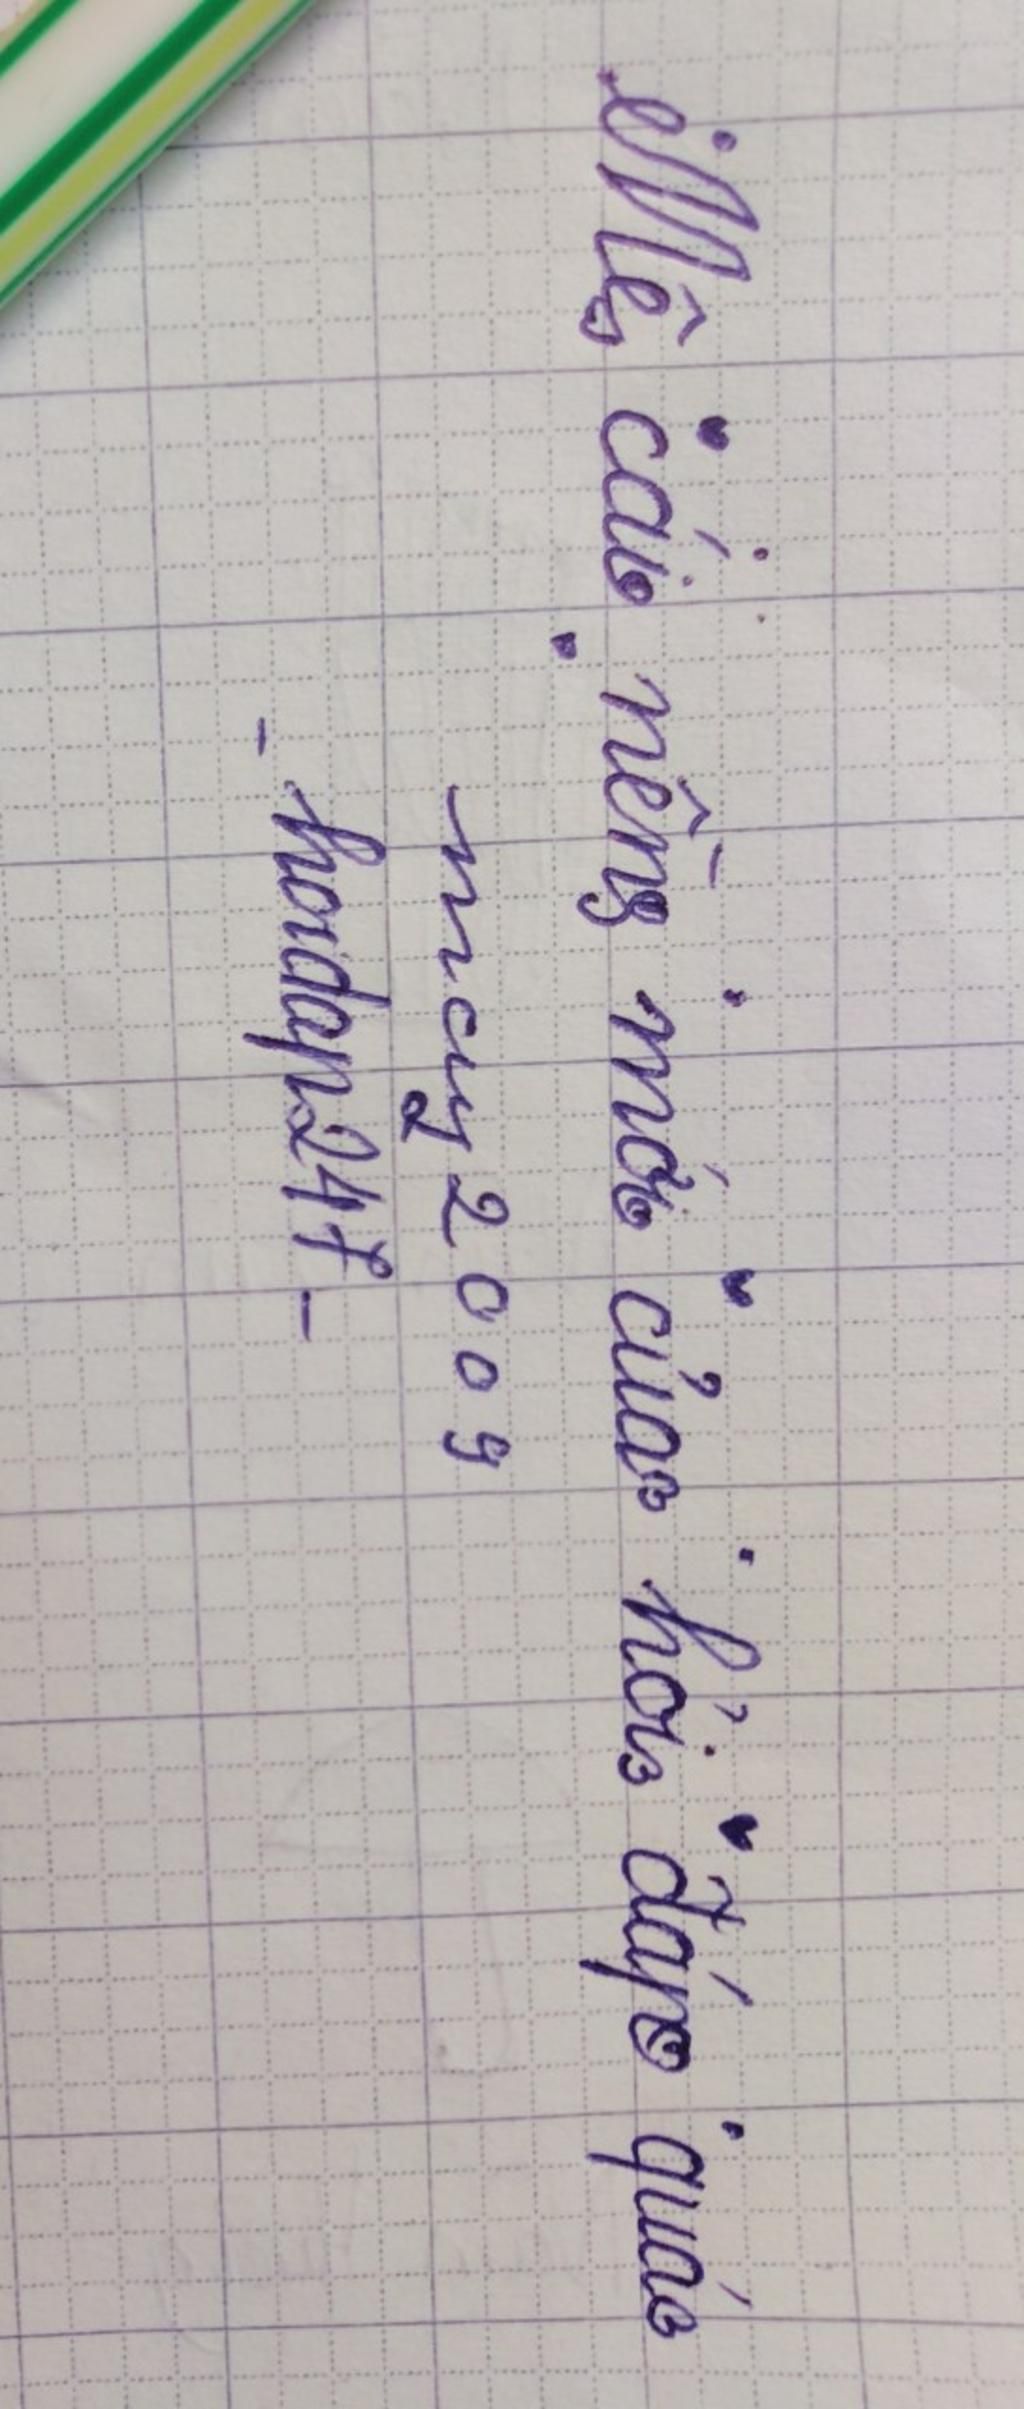 Mê cái nềng mới của hỏi đáp quá
ncy2009
- hoidap247 -